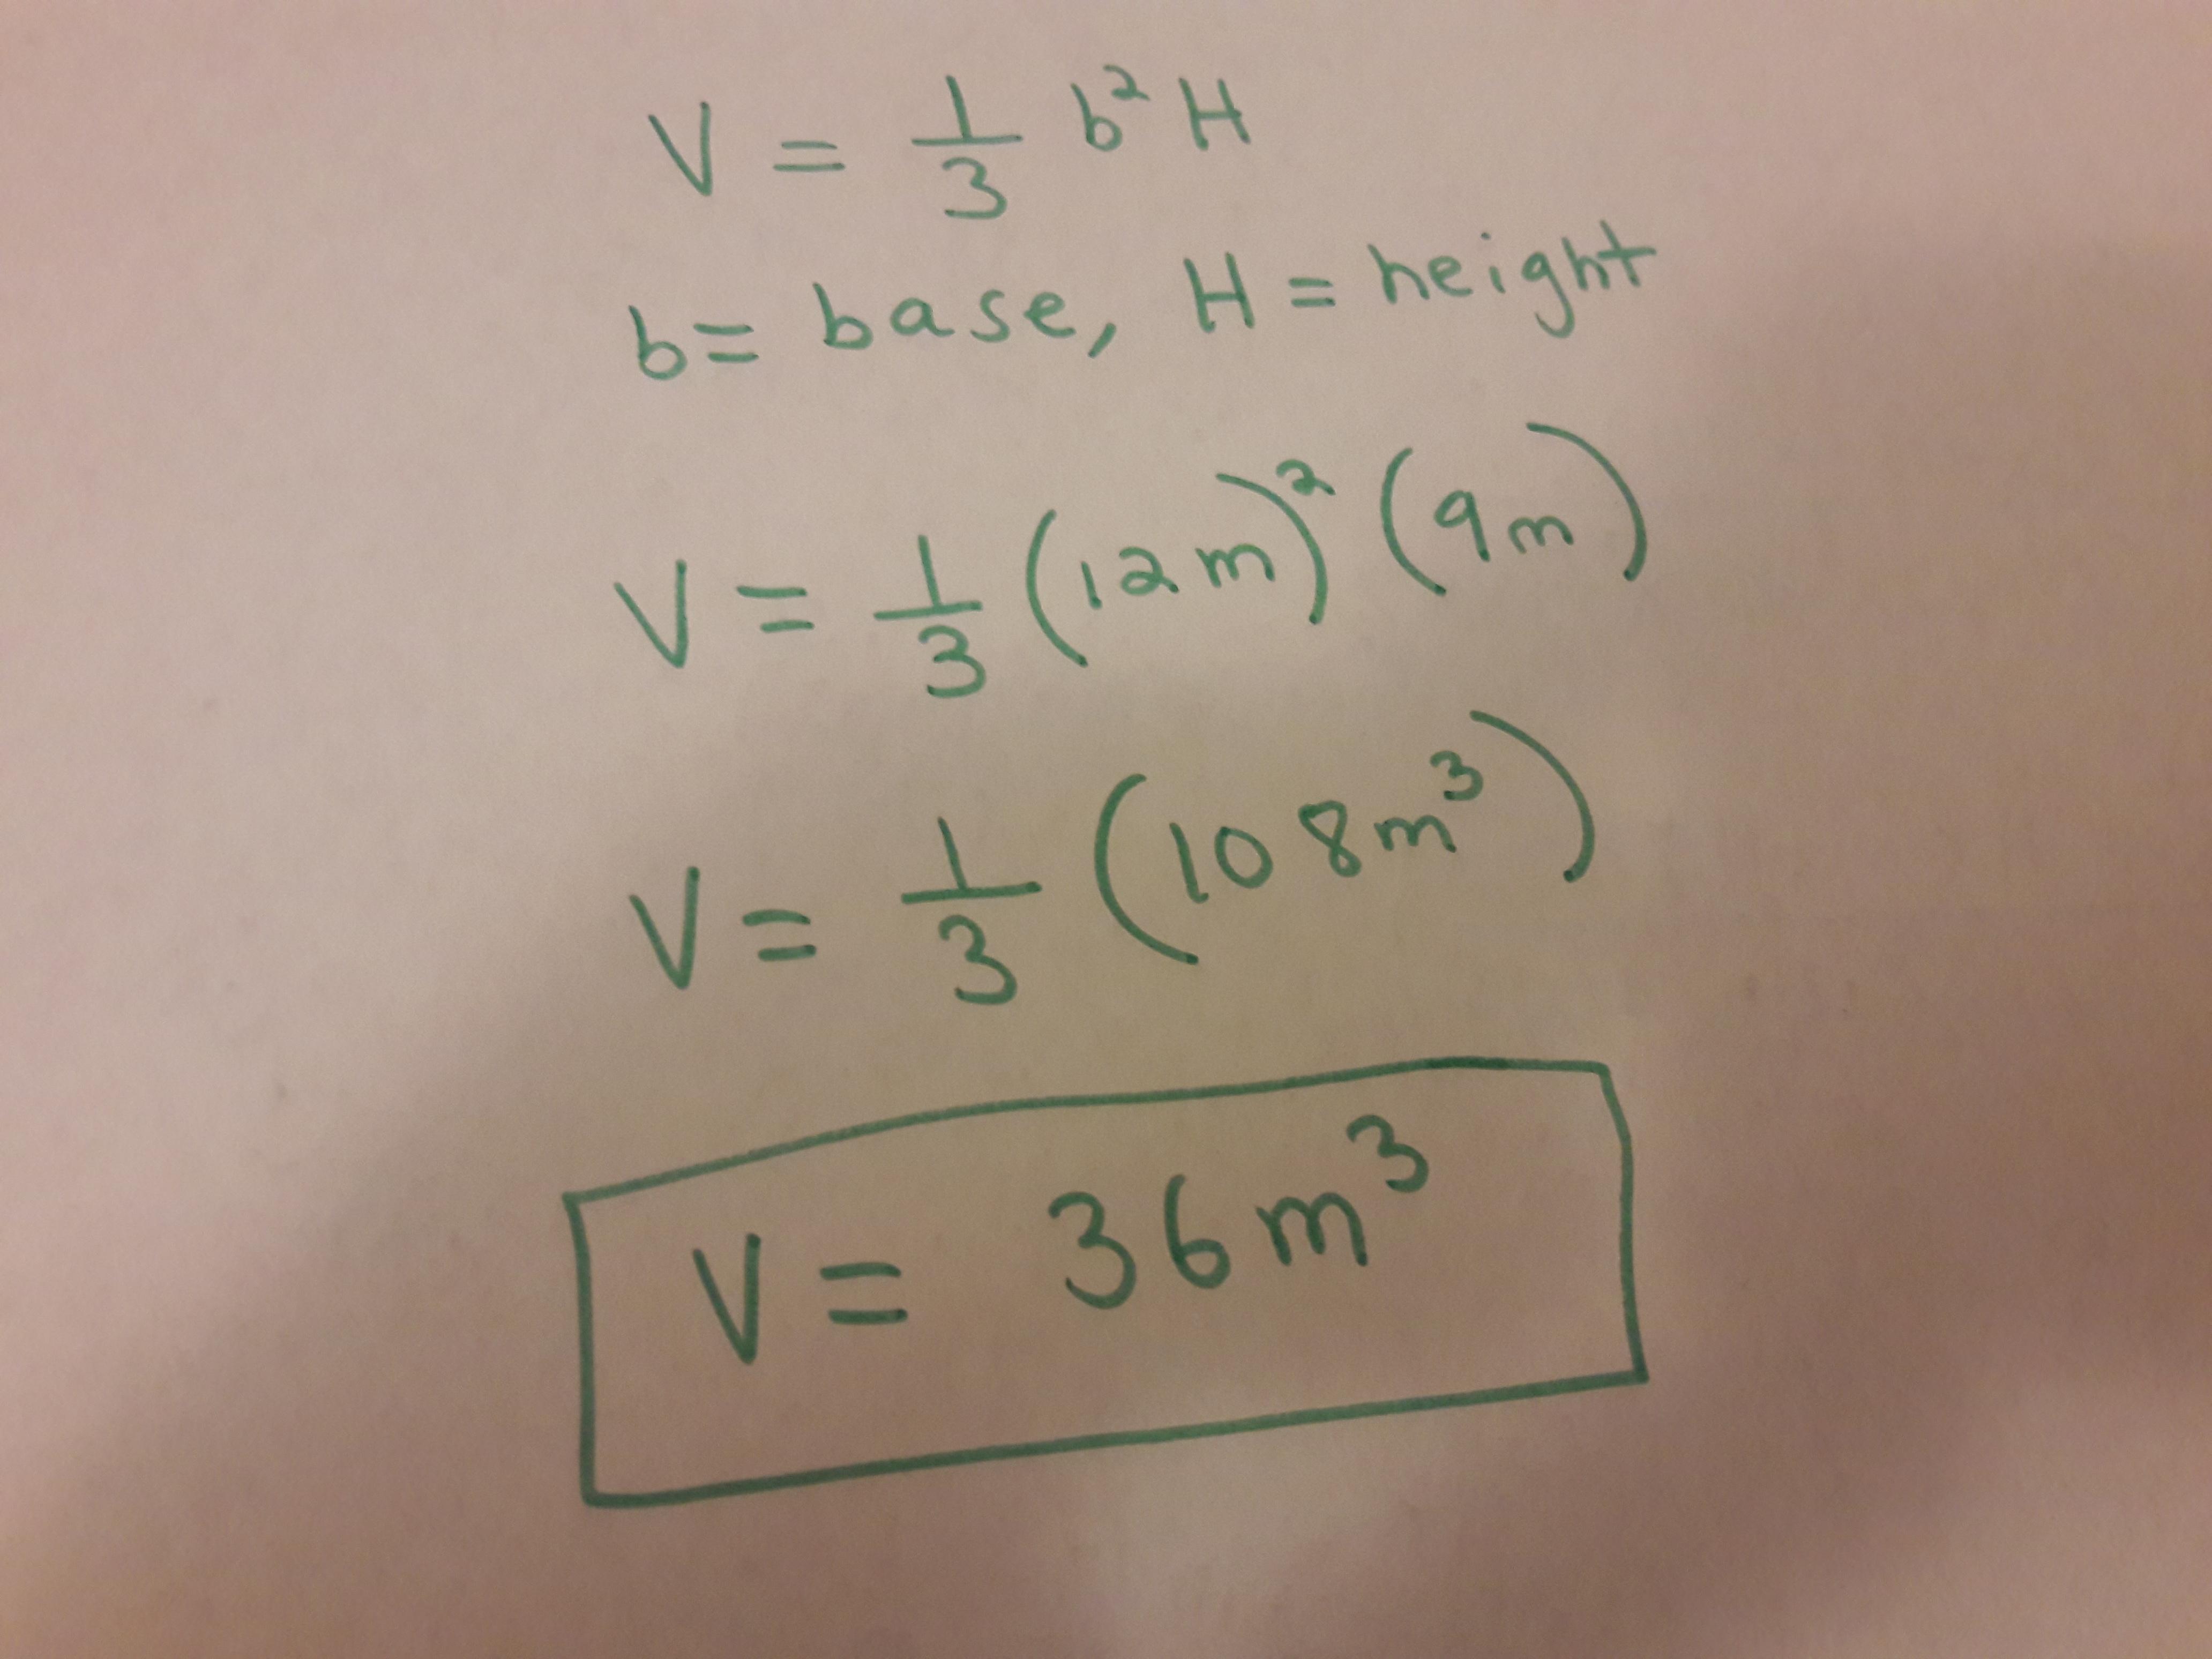 V = 1/3 b² H
b = base, H = height
V = 1/3 (12m)² (9m)
V = 1/3 (108m³)
V = 36m³